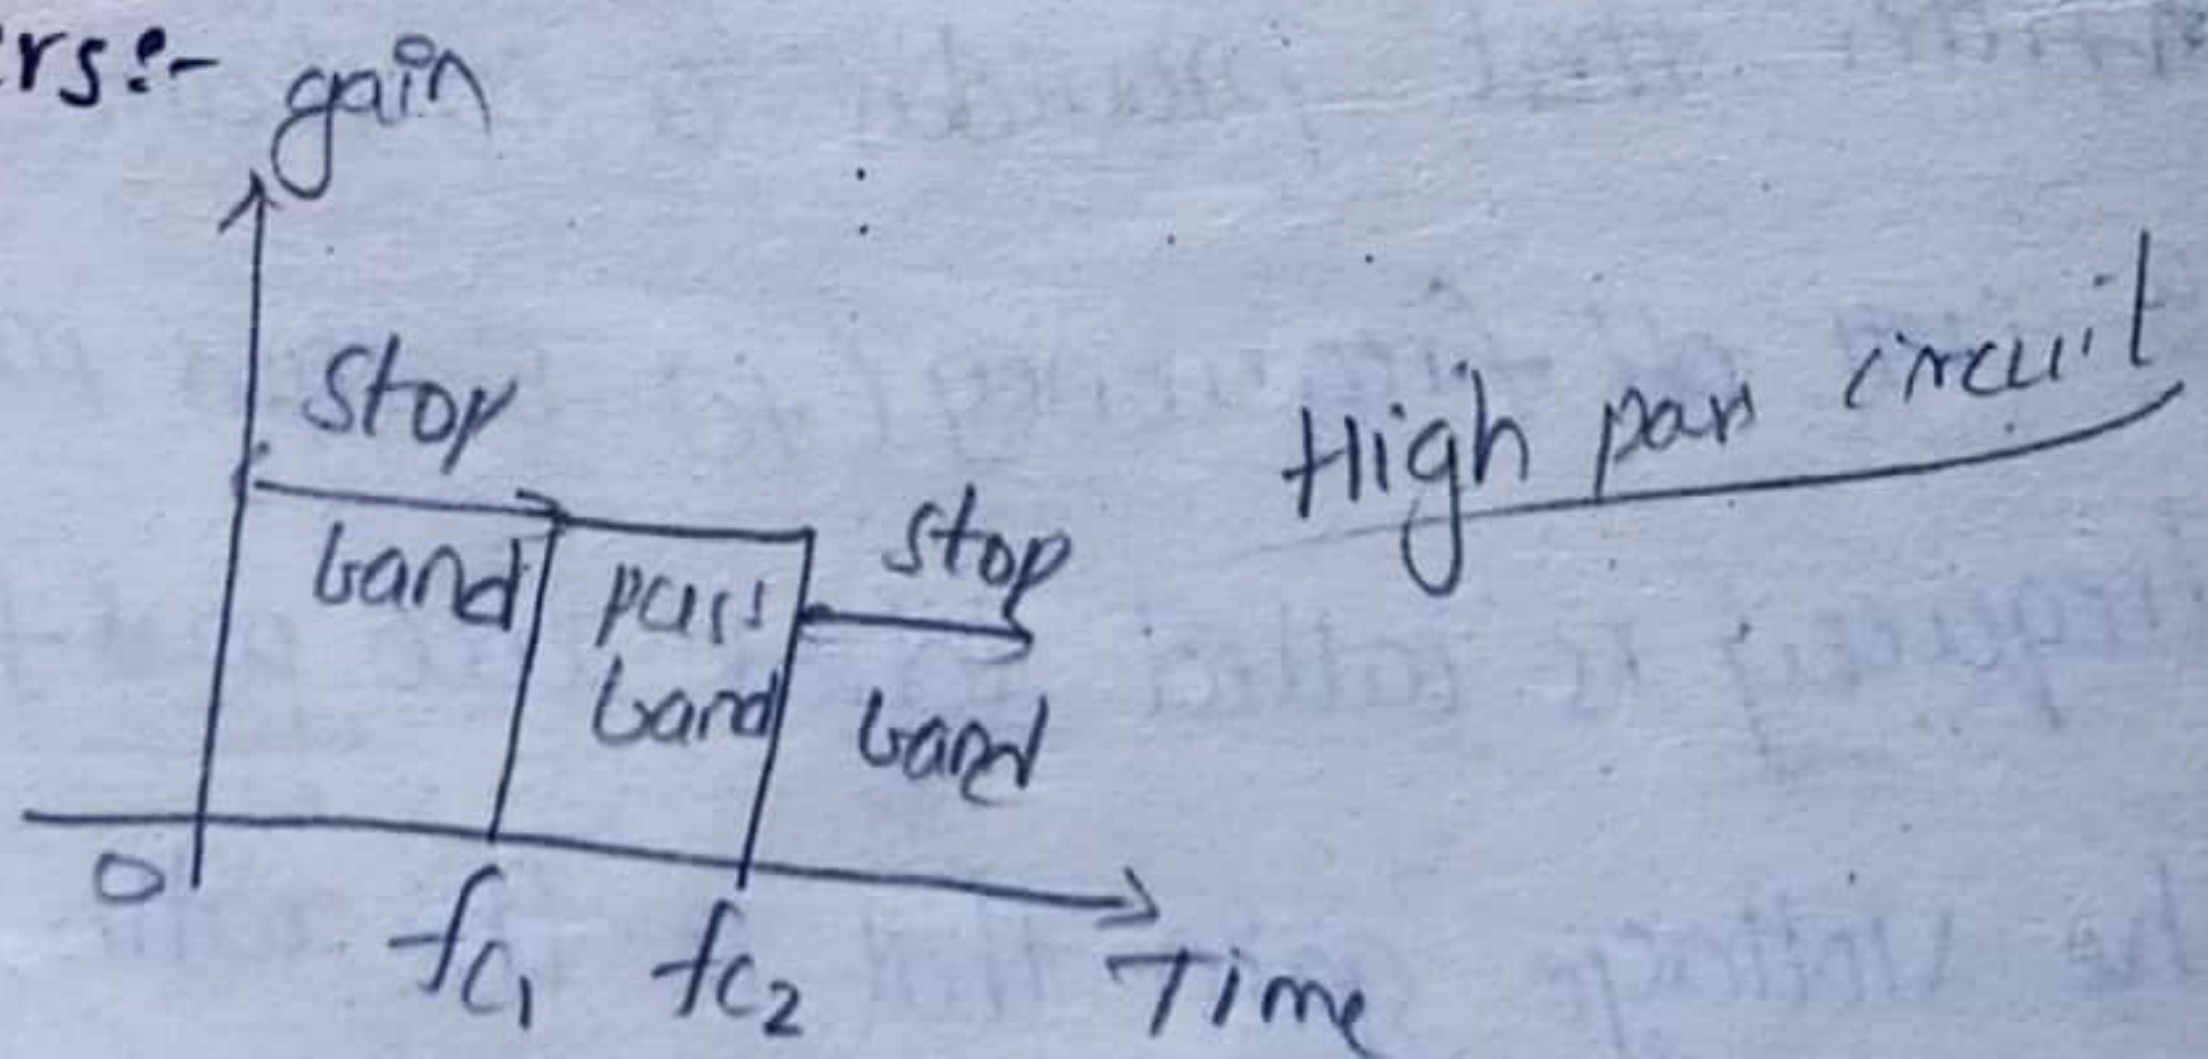 rs:-
gain
Stop
band
pass
band
stop
band
High pass circuit
0
fc1
fc2
Time